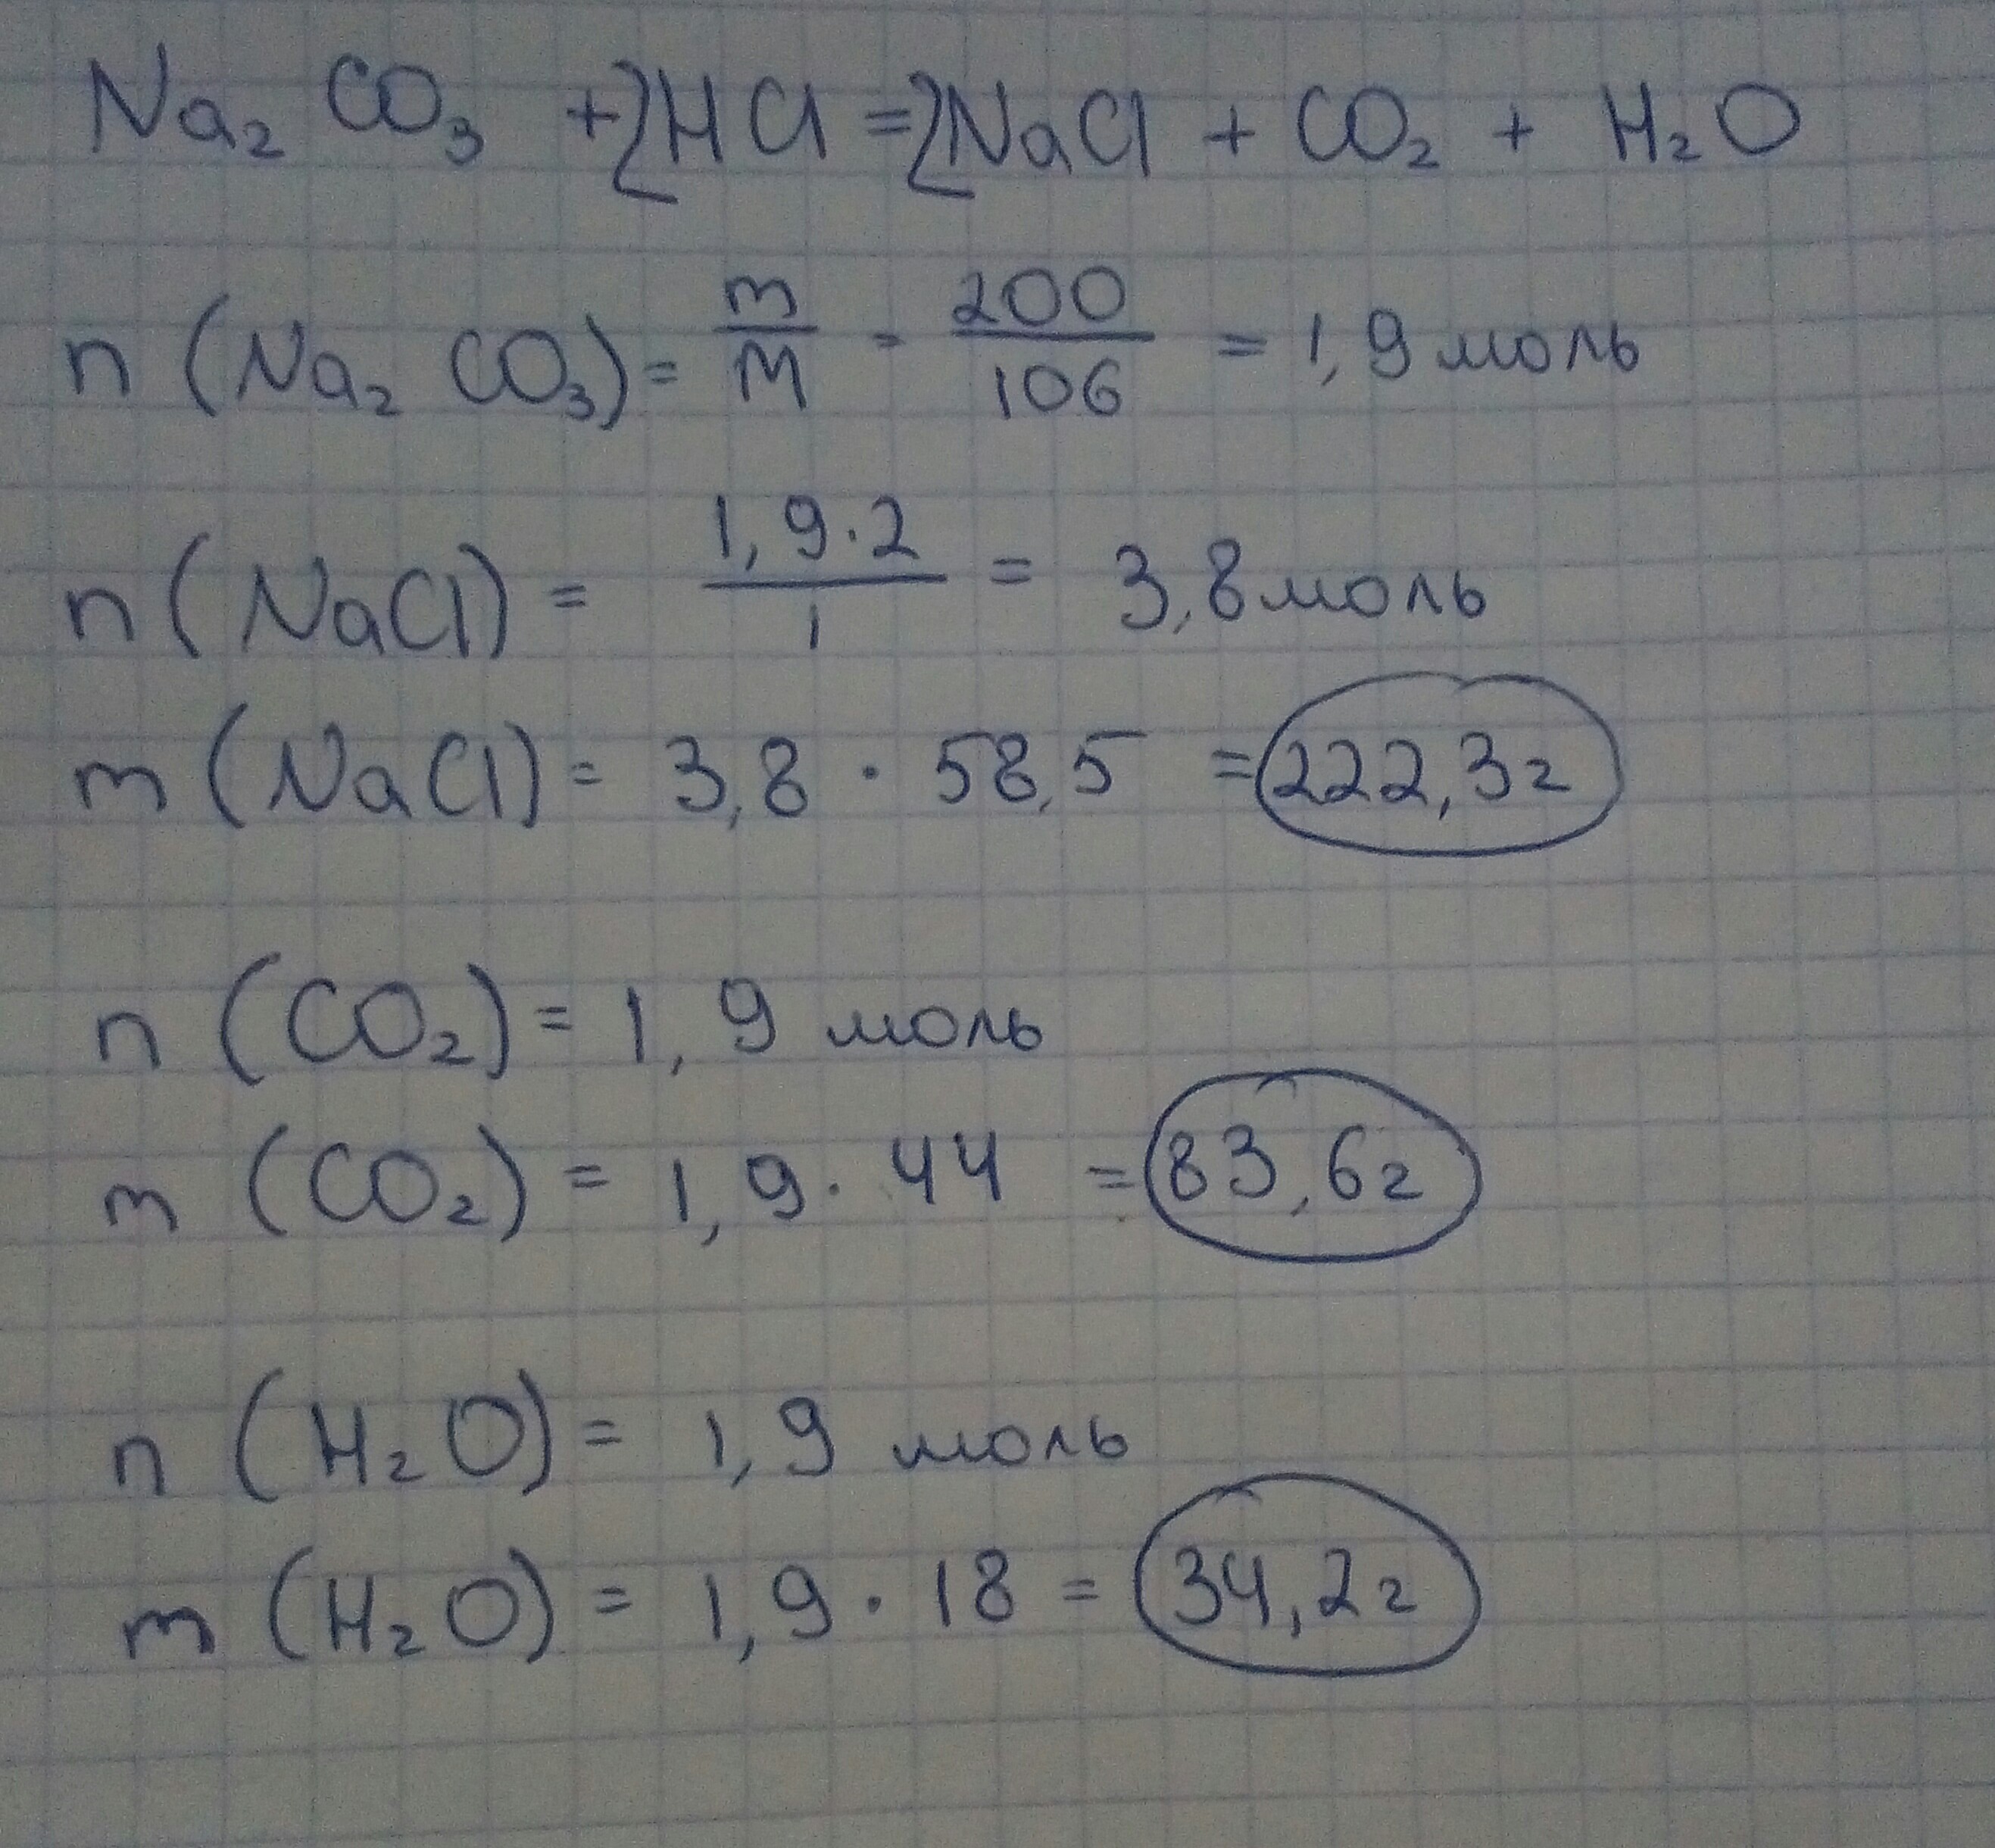 Na₂CO₃ + 2HCl = 2NaCl + CO₂ + H₂O
n (Na₂CO₃) = m/M - 200/106 = 1,9 моль
n (NaCl) = 1,9·2/1 = 3,8 моль
m (NaCl) = 3,8 · 58,5 = 222,3г
n (CO₂) = 1,9 моль
m (CO₂) = 1,9 · 44 = 83,6г
n (H₂O) = 1,9 моль
m (H₂O) = 1,9 · 18 = 34,2г